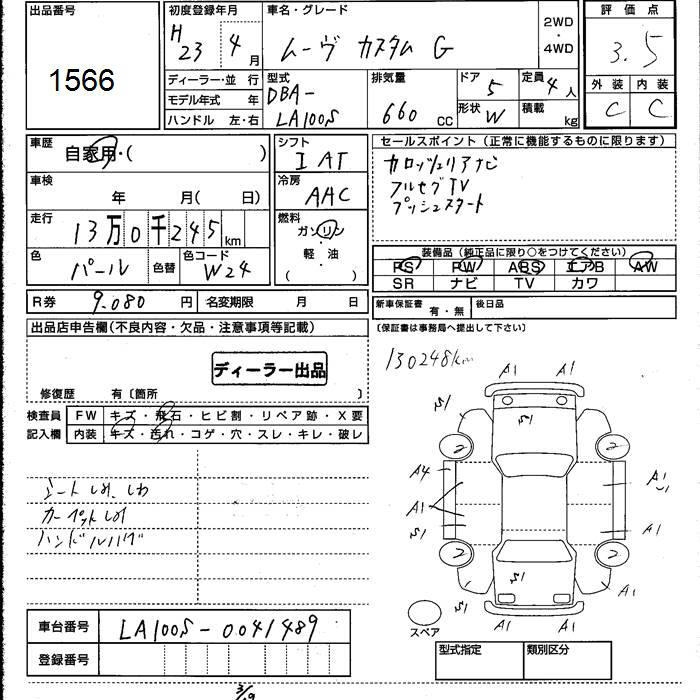 出品番号
1566
初度登録年月
H 23年 4月
車名・グレード
ムーヴ カスタム G
2WD
・
4WD
評価点
3.5
ディーラー・並行
モデル年式 年
ハンドル 左・右
型式
DBA-
LA100S
排気量
660 cc
ドア
5
形状 W
定員
4人
積載
kg
外装 内装
C C
車歴
自家用・( )
シフト
I AT
車検
年 月( 日)
冷房
AAC
走行
13万0千245km
燃料
ガソリン
・軽油
( )
色
パール
色替
色コード
W24
R券 9.080 円
名変期限 月 日
セールスポイント(正常に機能するものに限ります)
カロッツェリアナビ
フルセグTV
プッシュスタート
装備品(純正品に限り○をつけてください)
PS PW ABS エアB AW
SR ナビ TV カワ
新車保証書
有・無
後日品
(保証書は事務局へ提出して下さい)
出品店申告欄(不良内容・欠品・注意事項等記載)
ディーラー出品
修復歴 有〔箇所 〕
検査員
記入欄
FW キズ・飛石・ヒビ割・リペア跡・X要
内装 キズ・汚れ・コゲ・穴・スレ・キレ・破レ
シートしみ、しわ
カーペットしみ
ハンドルハゲ
130248km
A1 A1
S1 S1
2 2
A4 A1
A1
S1 A1
2 2
S1 S1 A1
A1 A1
スペア
車台番号 LA100S-0041489
登録番号
型式指定 類別区分
3/9